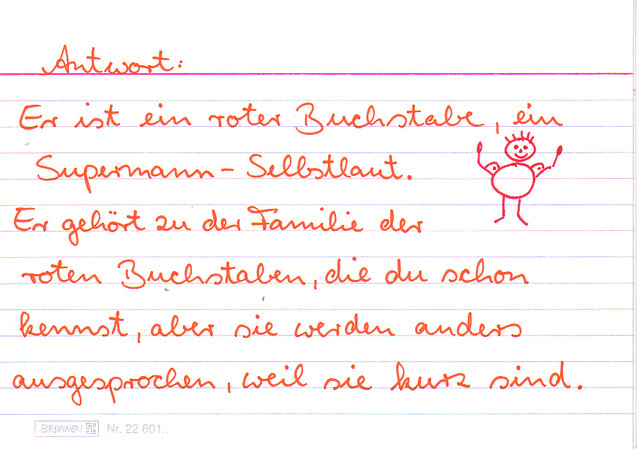 Antwort:
Er ist ein roter Buchstabe, ein
Supermann-Selbstlaut.
Er gehört zu der Familie der
roten Buchstaben, die du schon
kennst, aber sie werden anders
ausgesprochen, weil sie kurz sind.
BRUNNEN Nr. 22 601..